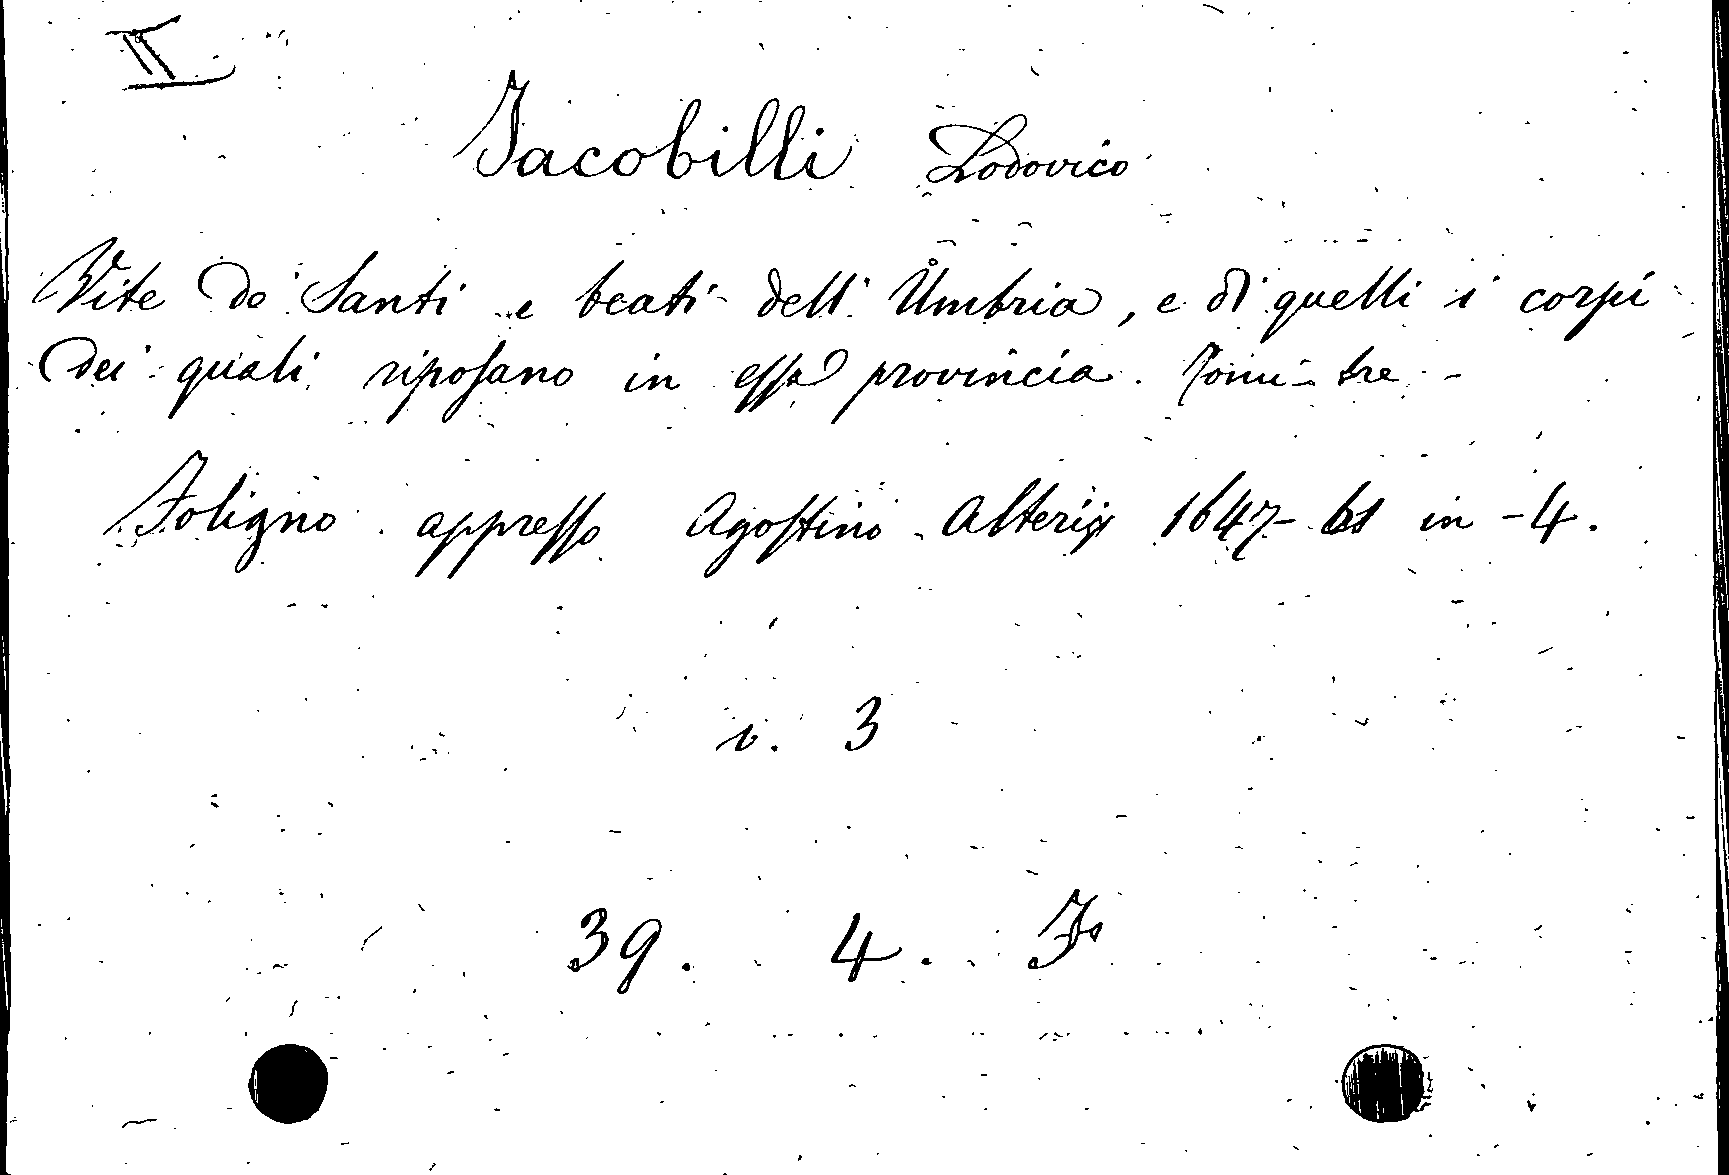 II
Jacobilli Lodovico
Vite de' Santi e beati dell' Umbria, e di quelli i corpi
dei quali riposano in essa provincia. Tomi tre -
Foligno appresso Agostino Alterij 1647-61 in-4.
v. 3
39. 4.